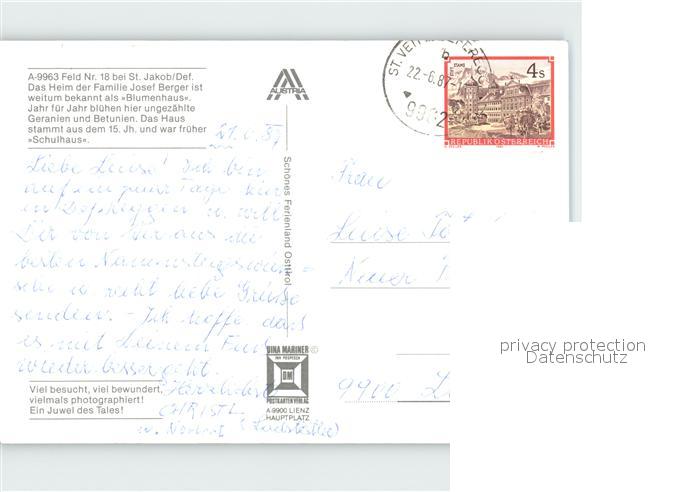 A-9963 Feld Nr. 18 bei St. Jakob/Def.
Das Heim der Familie Josef Berger ist
weitum bekannt als »Blumenhaus«.
Jahr für Jahr blühen hier ungezählte
Geranien und Betunien. Das Haus
stammt aus dem 15. Jh. und war früher
»Schulhaus«.
Liebe Luise! Ich bin
auf ein paar Tage hier
in u. will
Dir von hier aus die
besten Namenstagswün-
sche u. recht liebe Grüße
senden. - Ich hoffe, daß
es mit Deinem Fuß
wieder besser geht.
Herzlichst
CHRISTL
u. Norbert
Viel besucht, viel bewundert,
vielmals photographiert!
Ein Juwel des Tales!
AUSTRIA
Schönes Ferienland Osttirol
DINA MARINER ©
DM
POSTKARTENVERLAG
A-9900 LIENZ
HAUPTPLATZ
ST. VEIT
22.-6.87
9962
4 S
REPUBLIK ÖSTERREICH
Frau
Luise
Neuer
9900
privacy protection
Datenschutz